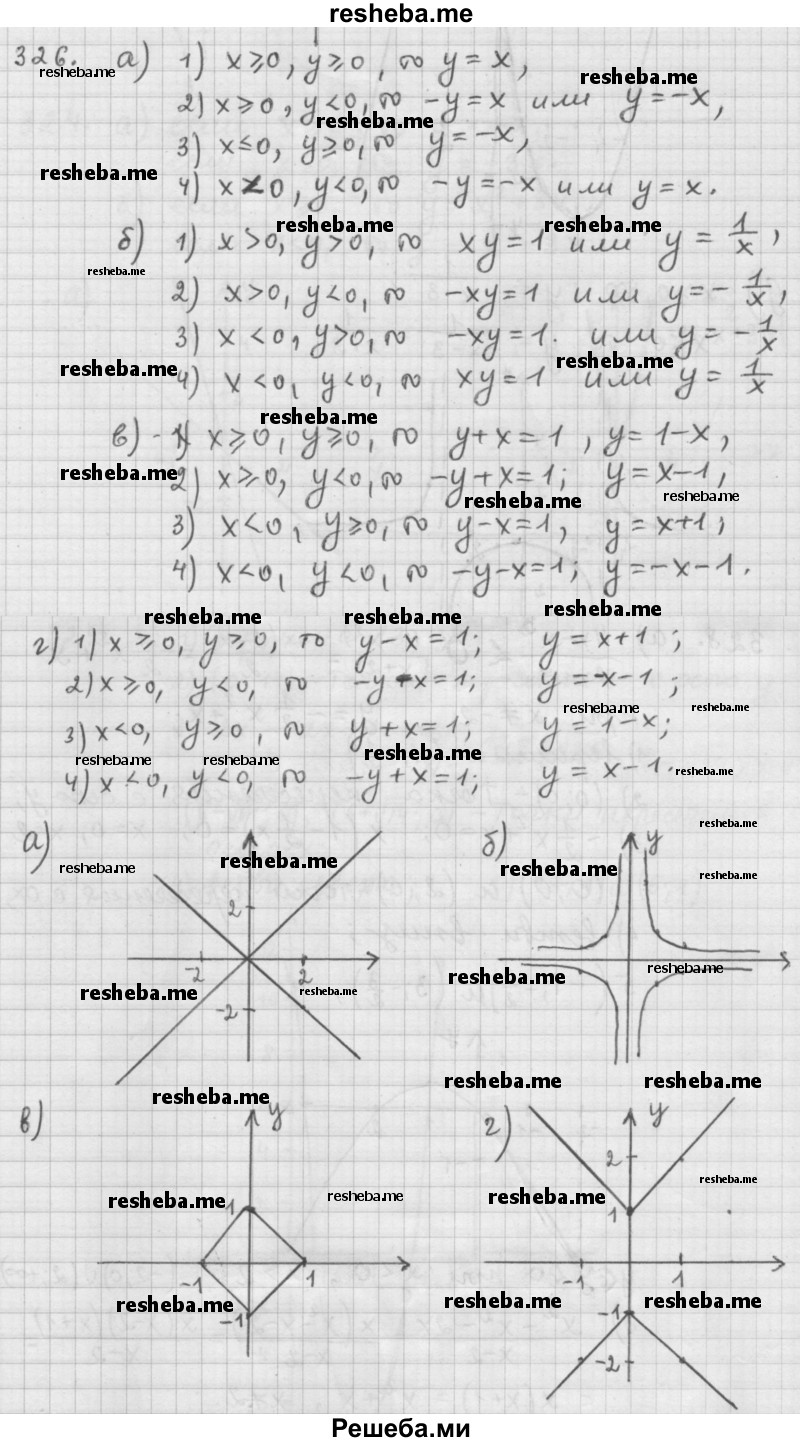 resheba.me
326. а) 1) x ⩾ 0, y ⩾ 0, то y = x,
resheba.me resheba.me
2) x ⩾ 0, y < 0, то -y = x или y = -x,
resheba.me
3) x ≤ 0, y ⩾ 0, то y = -x,
resheba.me
4) x < 0, y < 0, то -y = -x или y = x.
resheba.me resheba.me
б) 1) x > 0, y > 0, то xy = 1 или y = 1/x,
resheba.me
2) x > 0, y < 0, то -xy = 1 или y = -1/x,
3) x < 0, y > 0, то -xy = 1. или y = -1/x
resheba.me resheba.me
4) x < 0, y < 0, то xy = 1 или y = 1/x
resheba.me
в) - 1) x ⩾ 0, y ⩾ 0, то y + x = 1, y = 1 - x,
resheba.me
2) x ⩾ 0, y < 0, то -y + x = 1; y = x - 1,
resheba.me resheba.me
3) x < 0, y ⩾ 0, то y - x = 1, y = x + 1;
4) x < 0, y < 0, то -y - x = 1; y = -x - 1.
resheba.me resheba.me resheba.me
г) 1) x ⩾ 0, y ⩾ 0, то y - x = 1; y = x + 1;
2) x ⩾ 0, y < 0, то -y - x = 1; y = -x - 1;
resheba.me resheba.me
3) x < 0, y ⩾ 0, то y + x = 1; y = 1 - x;
resheba.me resheba.me resheba.me
4) x < 0, y < 0, то -y + x = 1; y = x - 1.
resheba.me
resheba.me
а) б) y
resheba.me resheba.me resheba.me resheba.me
2
-2 2
resheba.me resheba.me resheba.me resheba.me
-2
resheba.me resheba.me
resheba.me
в) y г) y
2
resheba.me resheba.me resheba.me resheba.me
1 1
-1 1 -1 1
resheba.me resheba.me resheba.me
-1 -1
-2
Решеба.ми